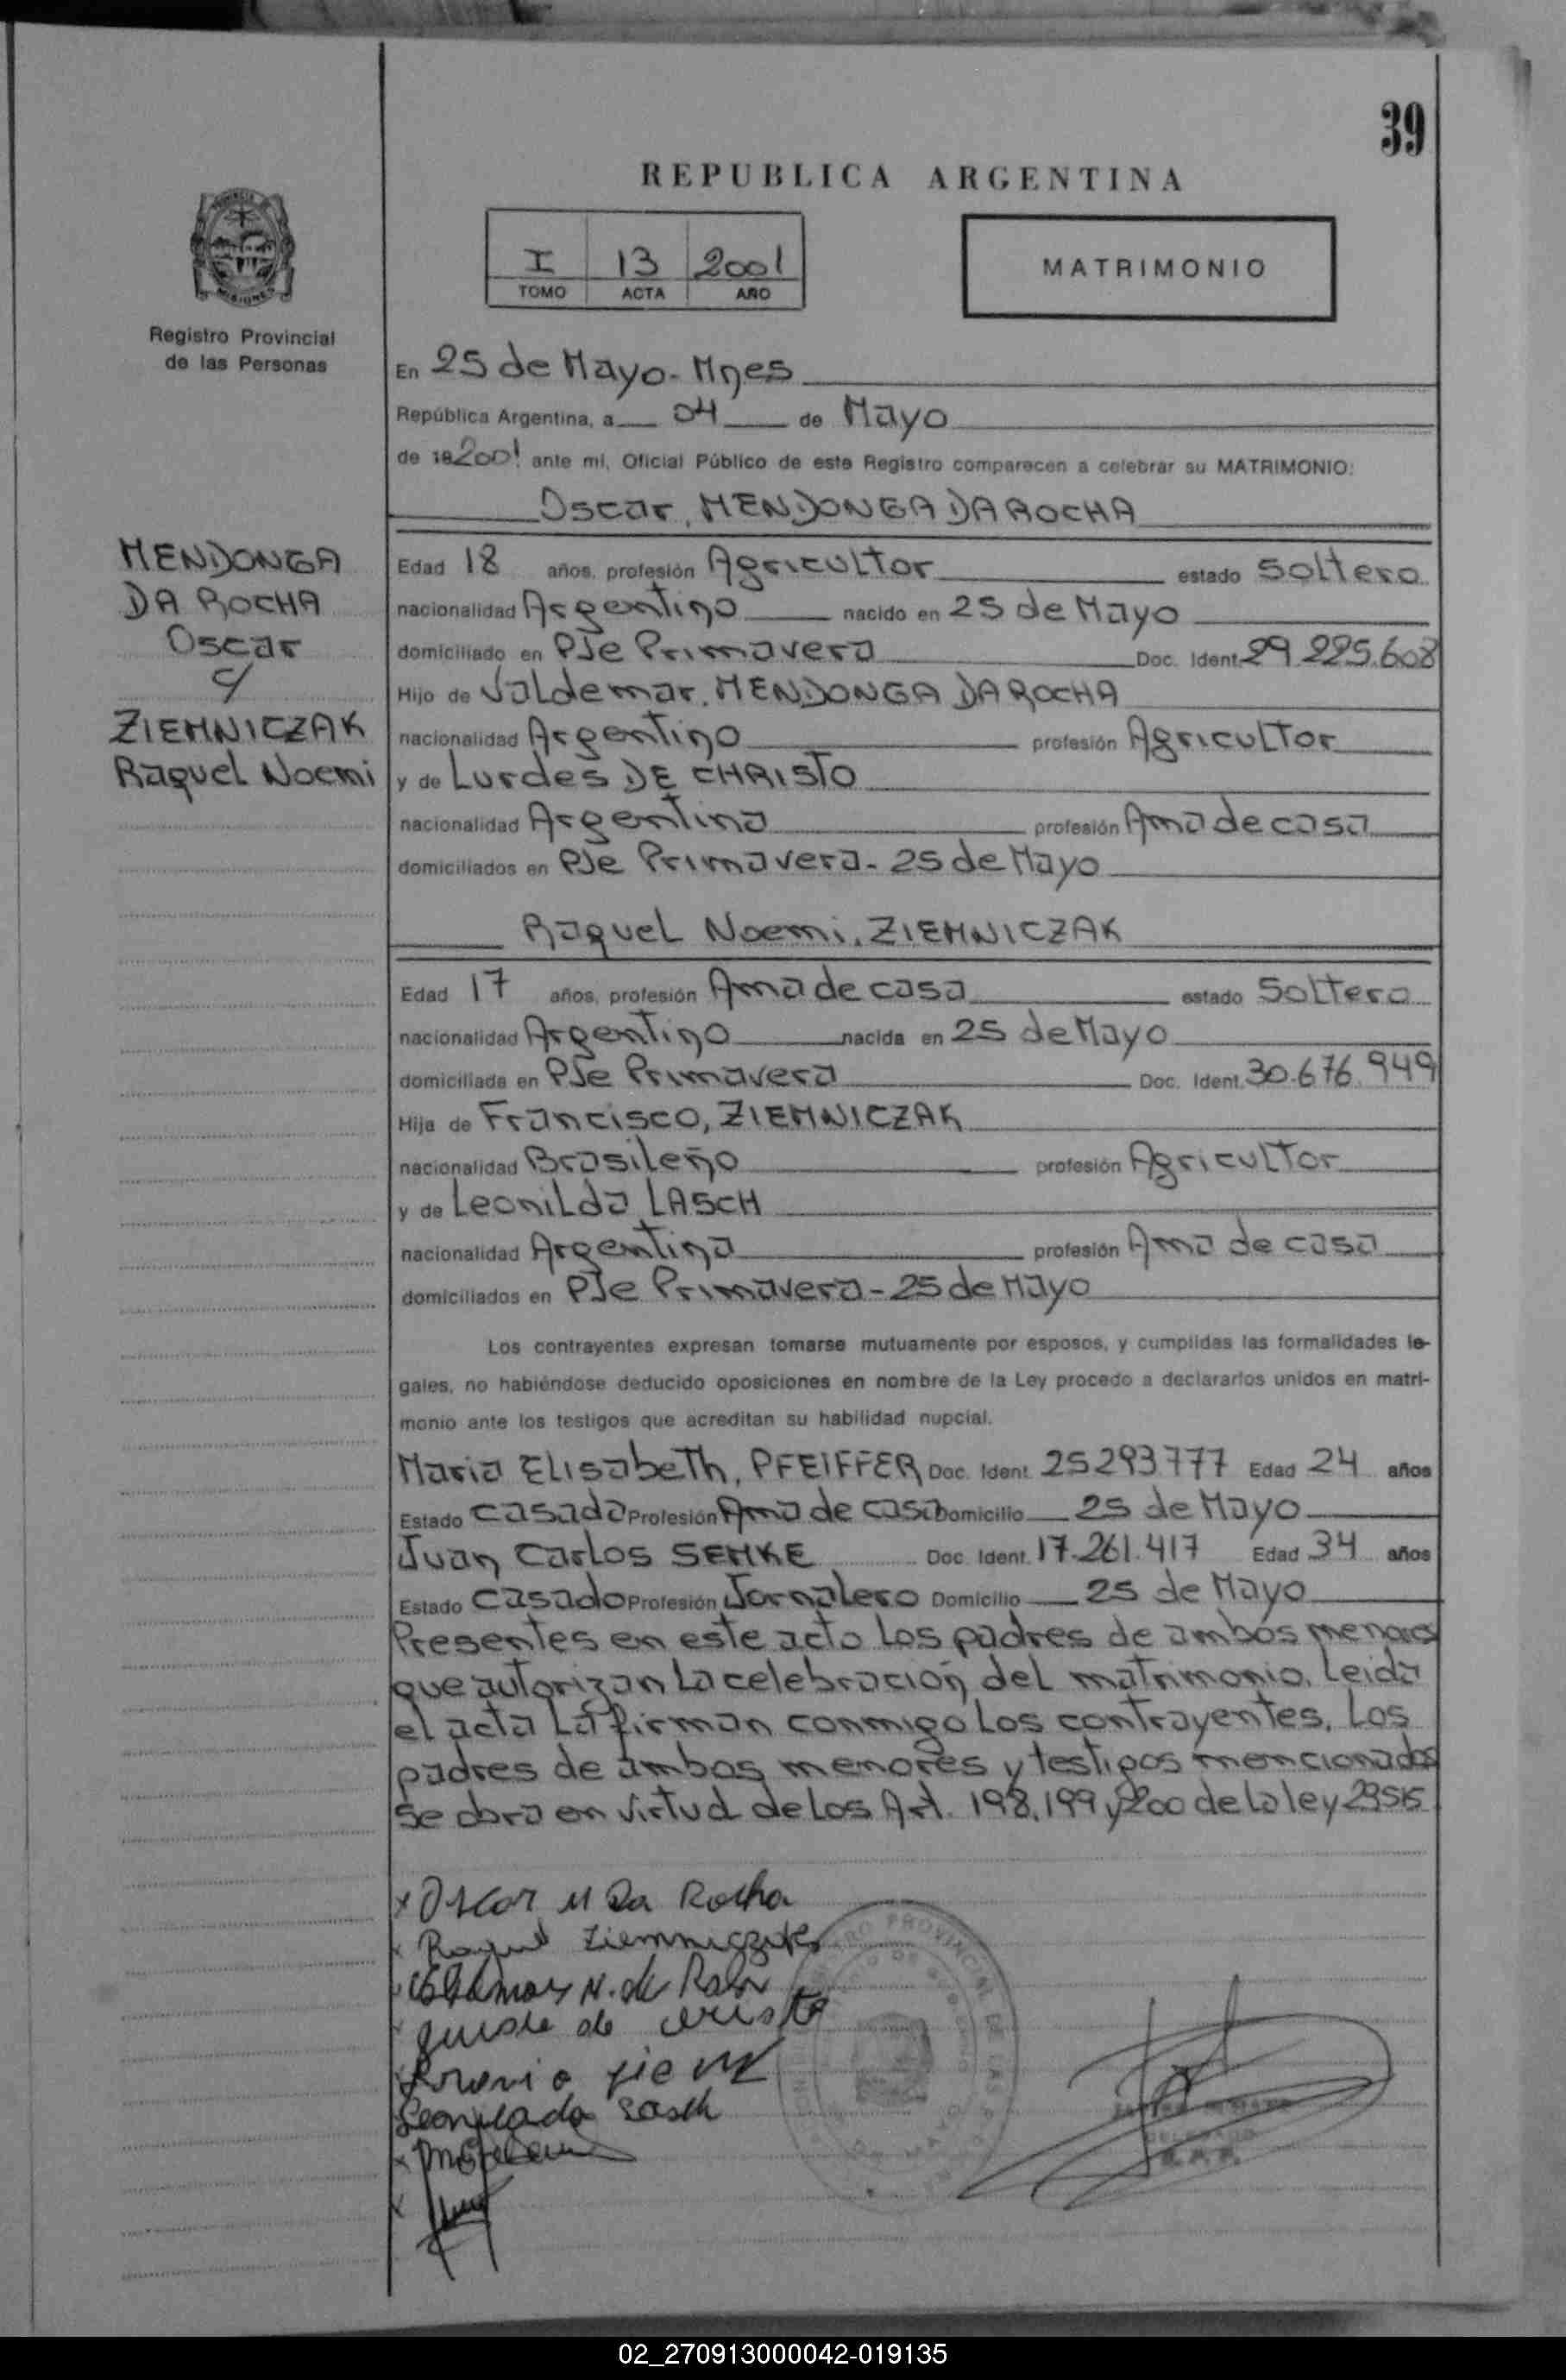 39
REPUBLICA ARGENTINA
I 13 2001
TOMO ACTA AÑO
MATRIMONIO
PROVINCIA DE
MISIONES
Registro Provincial
de las Personas
En 25 de Mayo - Mnes
República Argentina, a 04 de Mayo
de 19 2001 ante mí, Oficial Público de este Registro comparecen a celebrar su MATRIMONIO:
Oscar, MENDONGA DA ROCHA
MENDONGA
DA ROCHA
Oscar
c/
ZIEMNICZAK
Raquel Noemi
Edad 18 años, profesión Agricultor estado soltero
nacionalidad Argentino nacido en 25 de Mayo
domiciliado en PJe Primavera Doc. Ident. 29.225.608
Hijo de Valdemar, MENDONGA DA ROCHA
nacionalidad Argentino profesión Agricultor
y de Lurdes DE CHRISTO
nacionalidad Argentina profesión Ama de casa
domiciliados en PJe Primavera - 25 de Mayo
Raquel Noemi, ZIEMNICZAK
Edad 17 años, profesión Ama de casa estado Soltera
nacionalidad Argentina nacida en 25 de Mayo
domiciliada en PJe Primavera Doc. Ident. 30.676.949
Hija de Francisco, ZIEMNICZAK
nacionalidad Brasileño profesión Agricultor
y de Leonilda LASCH
nacionalidad Argentina profesión Ama de casa
domiciliados en PJe Primavera - 25 de Mayo
Los contrayentes expresan tomarse mutuamente por esposos, y cumplidas las formalidades le-
gales, no habiéndose deducido oposiciones en nombre de la Ley procedo a declararlos unidos en matri-
monio ante los testigos que acreditan su habilidad nupcial.
Maria Elisabeth, PFEIFFER Doc. Ident. 25293777 Edad 24 años
Estado Casada Profesión Ama de casa Domicilio 25 de Mayo
Juan Carlos SEMKE Doc. Ident. 17.261.417 Edad 34 años
Estado Casado Profesión Jornalero Domicilio 25 de Mayo
Presentes en este acto los padres de ambos menores
que autorizan la celebración del matrimonio. Leida
el acta la firman conmigo los contrayentes, los
padres de ambos menores y testigos mencionados
se obra en virtud de los Art. 198, 199 y 200 de la ley 23515
x Oscar M Da Rocha
x Raquel Ziemniczak
Leonilada Lasch
02_270913000042-019135